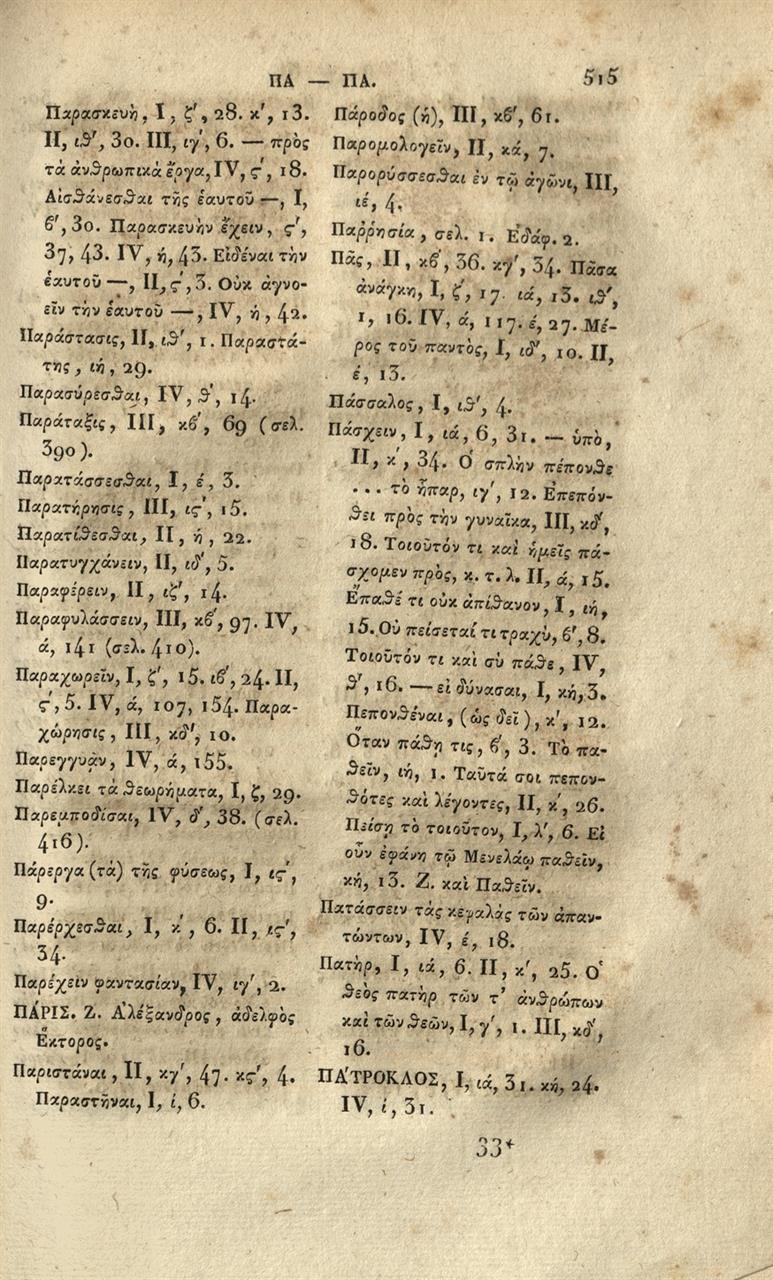 ΠΑ — ΠΑ.
515
Παρασκευὴ, I, ζ', 28. κ', 13.
II, ιθ', 30. III, ιγ', 6. — πρὸς
τὰ ἀνθρωπικὰ ἔργα, IV, ϛ', 18.
Αἰσθάνεσθαι τῆς ἑαυτοῦ —, I,
β', 30. Παρασκευὴν ἔχειν, ϛ',
37, 43. IV, ή, 43. Εἰδέναι τὴν
ἑαυτοῦ —, II, ϛ', 3. Οὐκ ἀγνο-
εῖν τὴν ἑαυτοῦ —, IV, ή, 42.
Παράστασις, II, ιθ', 1. Παραστά-
της, ιή, 29.
Παρασύρεσθαι, IV, θ', 14.
Παράταξις, III, κβ', 69 (σελ.
390).
Παρατάσσεσθαι, I, έ, 3.
Παρατήρησις, III, ιϛ', 15.
Παρατίθεσθαι, II, ή, 22.
Παρατυγχάνειν, II, ιδ', 5.
Παραφέρειν, II, ιζ', 14.
Παραφυλάσσειν, III, κβ', 97. IV,
ά, 141 (σελ. 410).
Παραχωρεῖν, I, ζ', 15. ιβ', 24. II,
ϛ', 5. IV, ά, 107, 154. Παρα-
χώρησις, III, κδ', 10.
Παρεγγυᾶν, IV, ά, 155.
Παρέλκει τὰ θεωρήματα, I, ζ, 29.
Παρεμποδίσαι, IV, δ', 38. (σελ.
416).
Πάρεργα (τὰ) τῆς φύσεως, I, ιϛ',
9.
Παρέρχεσθαι, I, κ', 6. II, ιϛ',
34.
Παρέχειν φαντασίαν, IV, ιγ', 2.
ΠΆΡΙΣ. Ζ. Ἀλέξανδρος, ἀδελφὸς
Ἕκτορος.
Παριστάναι, II, κγ', 47. κϛ', 4.
Παραστῆναι, I, ί, 6.
Πάροδος (ἡ), III, κβ', 61.
Παρομολογεῖν, II, κά, 7.
Παρορύσσεσθαι ἐν τῷ ἀγῶνι, III,
ιέ, 4.
Παῤῥησία, σελ. 1. Ἐδάφ. 2.
Πᾶς, II, κβ', 36. κγ', 34. Πᾶσα
ἀνάγκη, I, ζ', 17. ιά, 13. ιθ',
1, 16. IV, ά, 117. έ, 27. Μέ-
ρος τοῦ παντὸς, I, ιδ', 10. II,
έ, 13.
Πάσσαλος, I, ιθ', 4.
Πάσχειν, I, ιά, 6, 31. — ὑπὸ,
II, κ', 34. Ὁ σπλὴν πέπονθε
... τὸ ἧπαρ, ιγ', 12. Ἐπεπόν-
θει πρὸς τὴν γυναῖκα, III, κδ',
18. Τοιοῦτόν τι καὶ ἡμεῖς πά-
σχομεν πρὸς, κ. τ. λ. II, ά, 15.
Ἔπαθέ τι οὐκ ἀπίθανον, I, ιή,
15. Οὐ πείσεταί τι τραχὺ, β', 8.
Τοιοῦτόν τι καὶ σὺ πάθε, IV,
θ', 16. — εἰ δύνασαι, I, κή, 3.
Πεπονθέναι, (ὡς δεῖ), κ', 12.
Ὅταν πάθη τις, β', 3. Τὸ πα-
θεῖν, ιή, 1. Ταῦτά σοι πεπον-
θότες καὶ λέγοντες, II, κ', 26.
Πείσῃ τὸ τοιοῦτον, I, λ', 6. Εἰ
οὖν ἐφάνη τῷ Μενελάῳ παθεῖν,
κή, 13. Ζ. καὶ Παθεῖν.
Πατάσσειν τὰς κεφαλὰς τῶν ἀπαν-
τώντων, IV, έ, 18.
Πατὴρ, I, ιά, 6. II, κ', 25. Ὁ
θεὸς πατὴρ τῶν τ' ἀνθρώπων
καὶ τῶν θεῶν, I, γ', 1. III, κδ',
16.
ΠΆΤΡΟΚΛΟΣ, I, ιά, 31. κή, 24.
IV, ί, 31.
33*